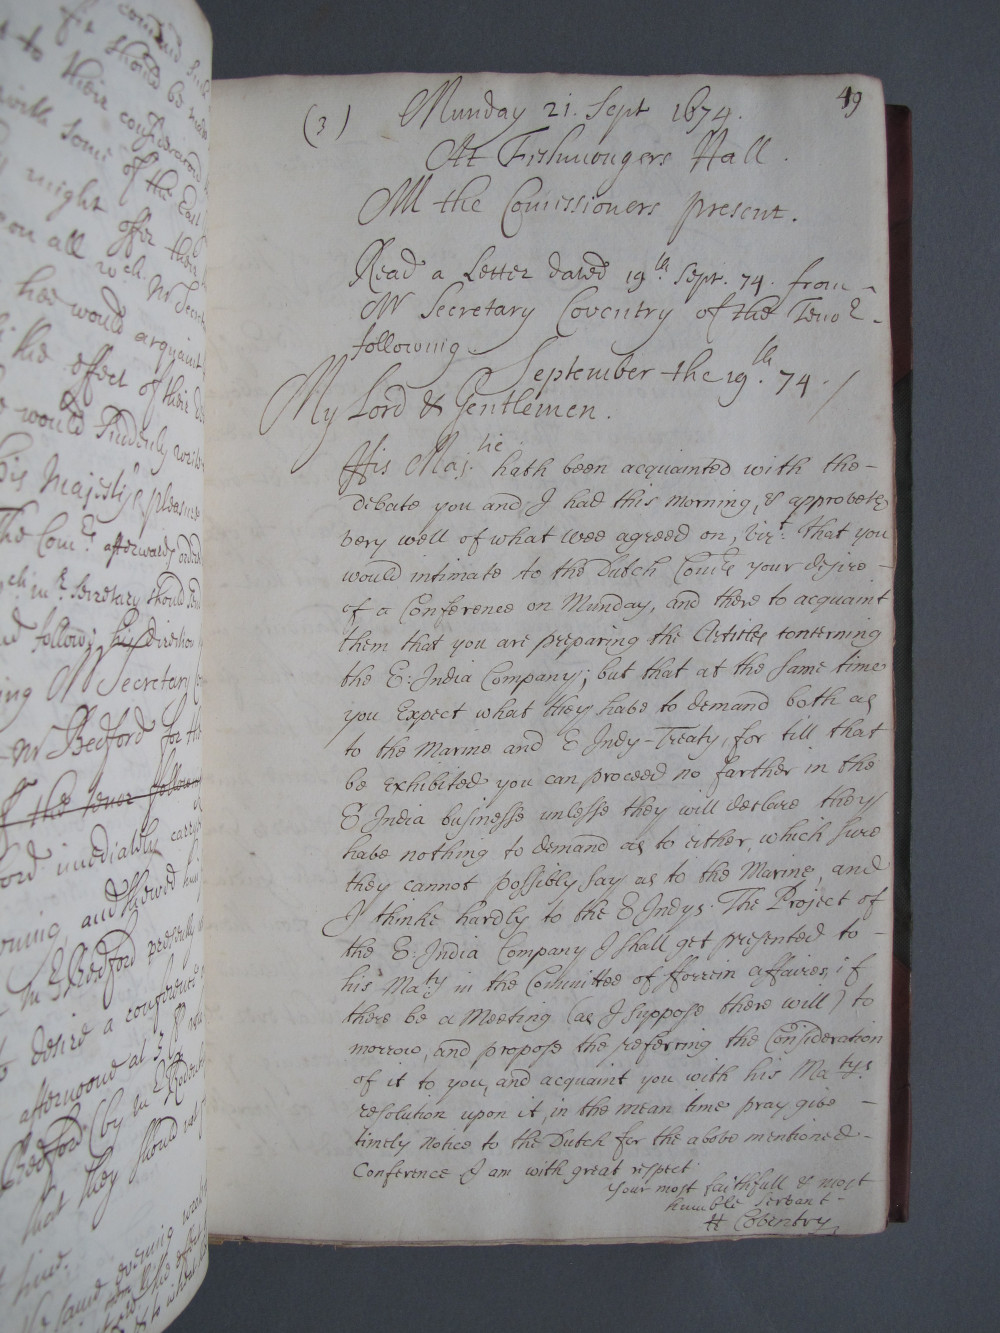 fit
comand such
should be made
t to their consideracõn
with some
of the East
might offer their
on all wch. Mr Secret
hee would acquaint
the effect of their
would suddenly write
his Majesty's pleasure
the Comrs. afterwards ordered
Secretary should send
follow; his direction
ing Mr Secretary
Mr Bedford for the
the tenor following
ord imediatly carry
orning and shewed him
Mr Bedford presently
desire a conference
afternoone at 3
Bedford (by Mr
that they should not
hind.
same evening
49
(3) Munday 21. Sept 1674.
At Fishmongers Hall.
All the Comissioners present.
Read a Letter dated 19th Sept. 74. from
Mr Secretary Coventry of the Teno.r
following.
September the 19.th 74.
My Lord & Gentlemen.
His Maj.tie hath been acquainted with the
debate you and I had this morning, & approveth
very well of what wee agreed on, vizt. That you
would intimate to the Dutch Com.rs your desire
of a Conference on Munday, and there to acquaint
them that you are preparing the Articles concerning
the E: India Company; but that at the same time
you Expect what they have to demand both as
to the Marine and E Indy-Treaty, for till that
be exhibited you can proceed no farther in the
E India businesse unlesse they will declare they
have nothing to demand as to either, which sure
they cannot possibly say as to the Marine, and
I thinke hardly to the E Indys. The Project of
the E: India Company I shall get presented to
his Maty in the Committee of forrein affaires, if
there be a Meeting (as I suppose there will) to
morrow, and propose the referring the Consideration
of it to you, and acquaint you with his Matys.
resolution upon it, in the mean time pray give
timely notice to the Dutch for the above mentioned
Conference I am with great respect
Your most faithfull & most
humble servant
H Coventry